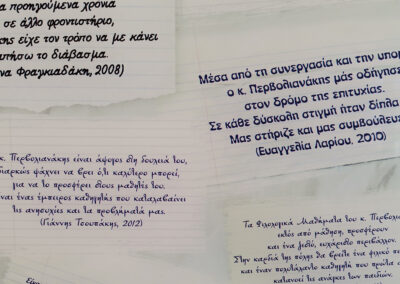 α προηγούμενα χρόνια
σε άλλο φροντιστήριο,
κης είχε τον τρόπο να με κάνει
απήσω το διάβασμα.
να Φραγκιαδάκη, 2008)
Μέσα από τη συνεργασία και την υπομ
ο κ. Περβολιανάκης μάς οδήγησε
στον δρόμο της επιτυχίας.
Σε κάθε δύσκολη στιγμή ήταν δίπλα
Μας στήριζε και μας συμβούλευε
(Ευαγγελία Λαρίου, 2010)
κ. Περβολιανάκης είναι άψογος στη δουλειά του,
διαρκώς ψάχνει να βρει ό,τι καλύτερο μπορεί,
για να το προσφέρει στους μαθητές του.
ναι ένας έμπειρος καθηγητής που καταλαβαίνει
τις ανησυχίες και τα προβλήματά μας.
(Γιάννης Τσουπάκης, 2012)
Τα Φιλολογικά Μαθήματα του κ. Περβολια
εκτός από μάθηση, προσφέρουν
και ένα ζεστό, ευχάριστο περιβάλλον.
Στην καρδιά της πόλης θα βρείτε ένα φιλικό πε
και έναν πολυτάλαντο καθηγητή που πρώτα α
κατανοεί τις ανάγκες των παιδιών.
Είναι